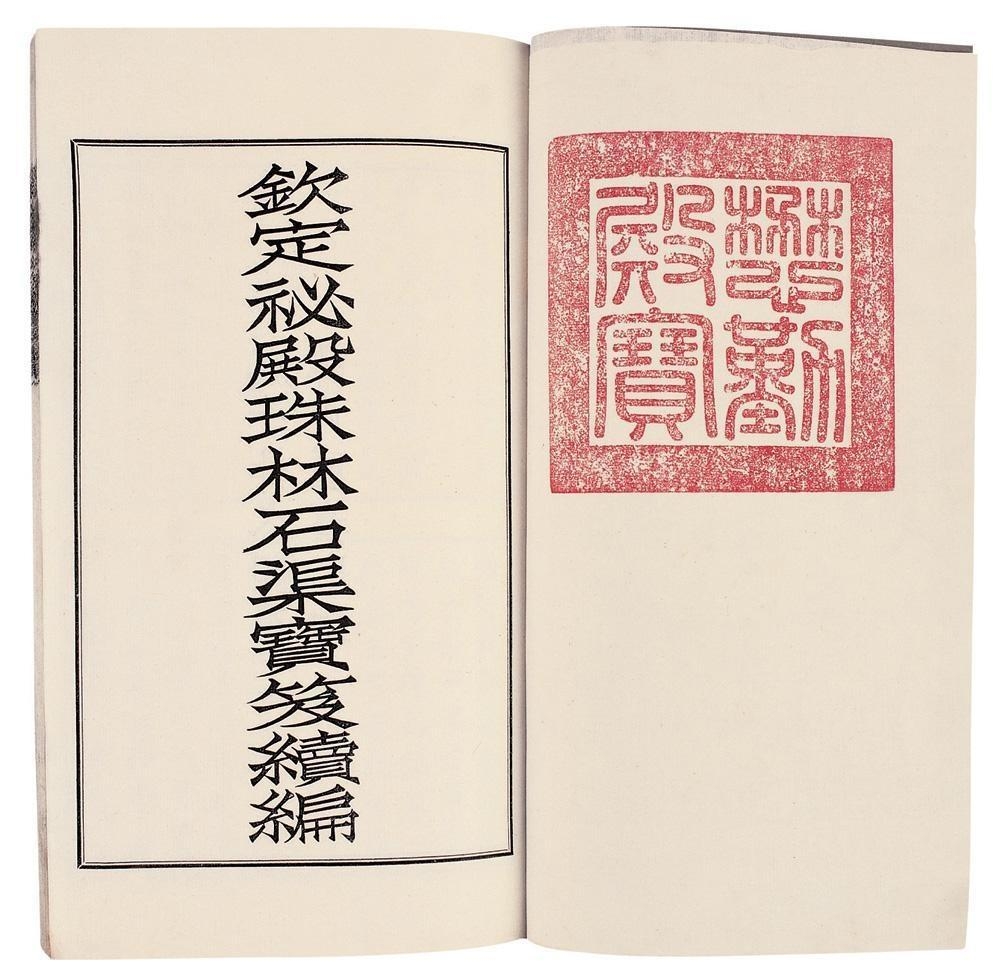 懋勤
殿寶
欽定祕殿珠林石渠寶笈續編